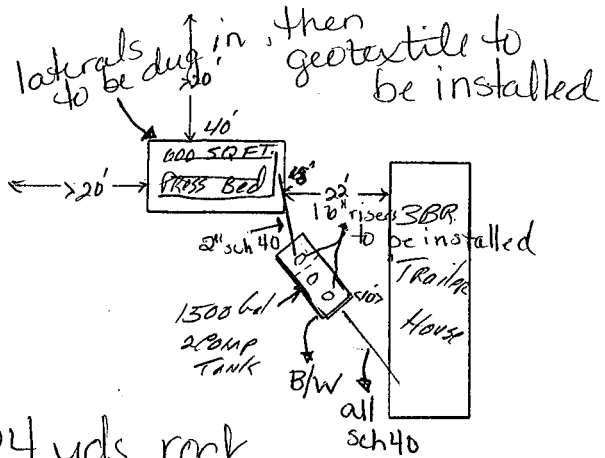 laterals
to be dug in, then
geotextile to
be installed
>20'
40'
600 SQ FT.
Press Bed
>20'
22'
16" risers
to be installed
2" sch 40
3BR.
Trailer
House
1500 Gal
2 comp
Tank
B/W
all
sch 40
24 yds rock